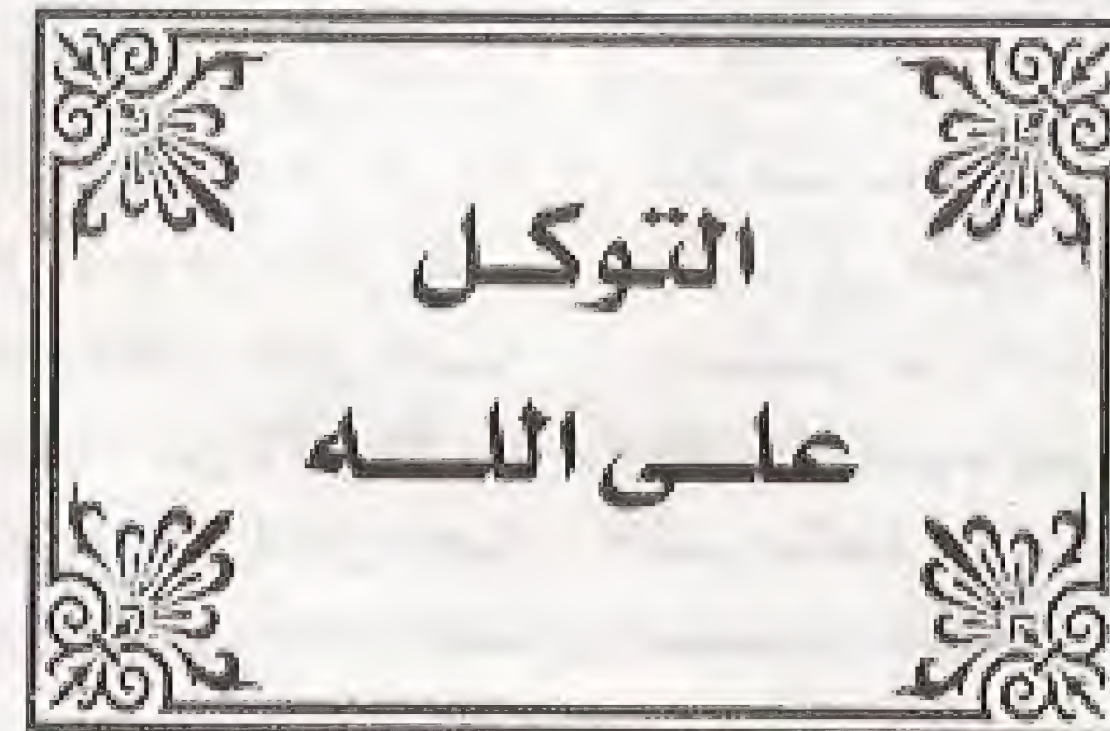 التوكل
على الله